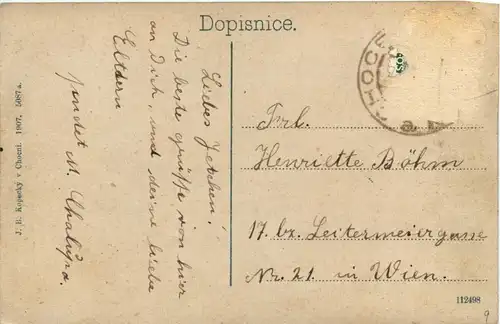 Dopisnice.
Liebes Jetchen!
Die beste grüsse von hier
an Dich, und deine liebe
Eltern
sendet M. Chalupa.
J. E. Kopecký v Chocni. 1907. 5087a.
CHOC
Frl.
Henriette Böhm
17. bz. Leitermeiergasse
Nr. 21. in Wien.
112498
9